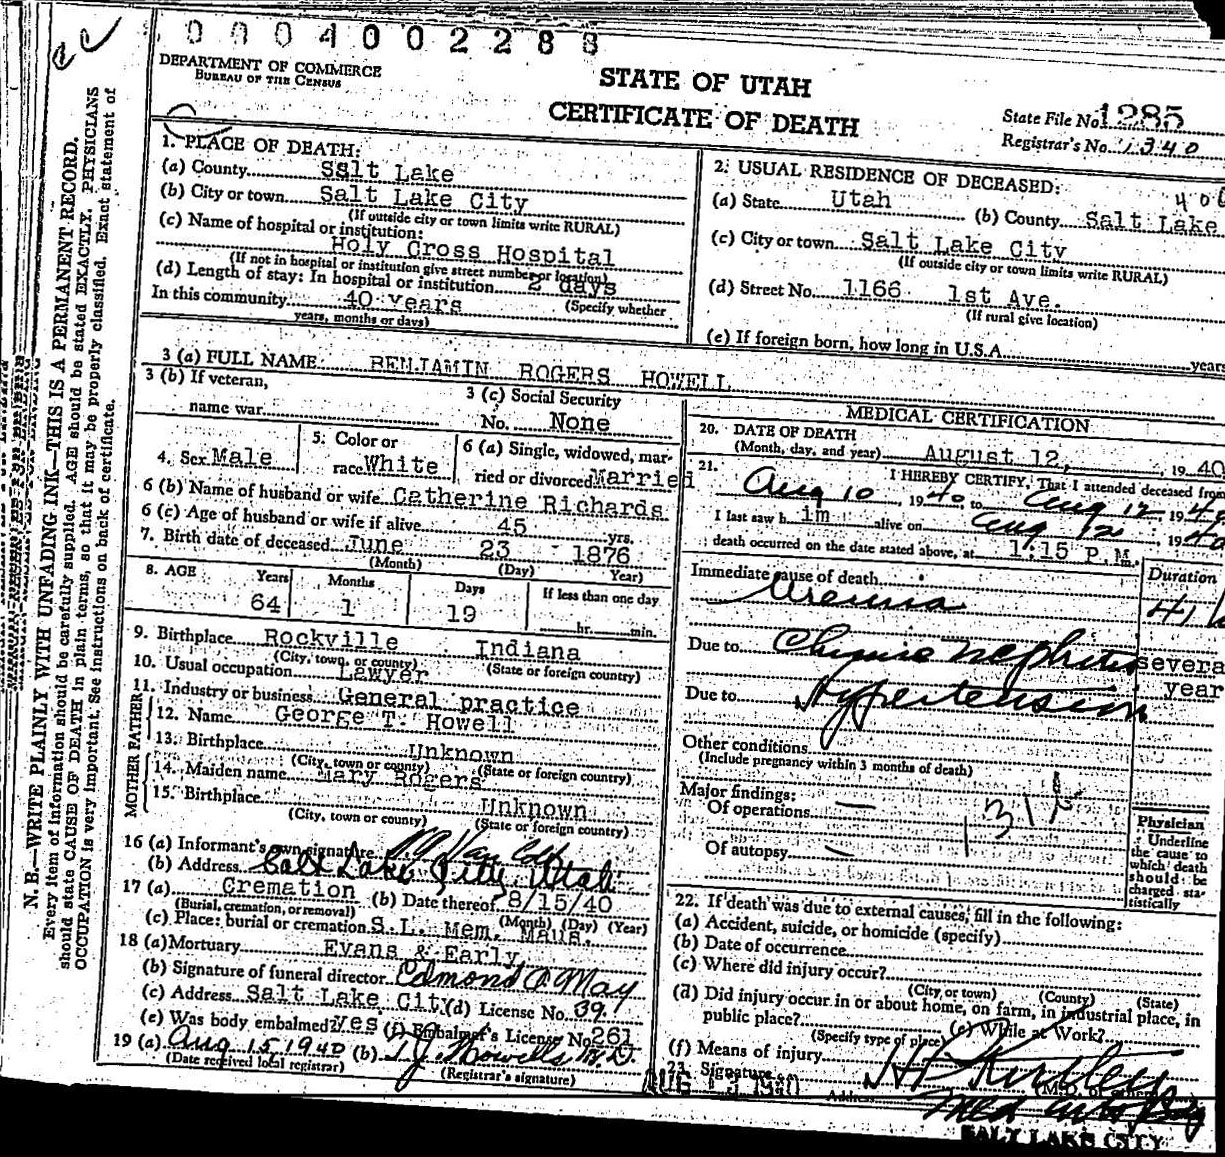 0004002288
DEPARTMENT OF COMMERCE
BUREAU OF THE CENSUS
STATE OF UTAH
CERTIFICATE OF DEATH
State File No. 1285
Registrar's No. 1340
N. B.—WRITE PLAINLY WITH UNFADING INK—THIS IS A PERMANENT RECORD.
Every item of information should be carefully supplied. AGE should be stated EXACTLY. PHYSICIANS
should state CAUSE OF DEATH in plain terms, so that it may be properly classified. Exact statement of
OCCUPATION is very important. See instructions on back of certificate.
1. PLACE OF DEATH:
(a) County Sslt Lake
(b) City or town Salt Lake City
(If outside city or town limits write RURAL)
(c) Name of hospital or institution:
Holy Cross Hospital
(If not in hospital or institution give street number or location)
(d) Length of stay: In hospital or institution 2 days
In this community 40 years (Specify whether
years, months or days)
2. USUAL RESIDENCE OF DECEASED:
(a) State Utah (b) County Salt Lake
(c) City or town Salt Lake City
(If outside city or town limits write RURAL)
(d) Street No. 1166 1st Ave.
(If rural give location)
(e) If foreign born, how long in U.S.A. years
3 (a) FULL NAME BENJAMIN ROGERS HOWELL
3 (b) If veteran,
name war
3 (c) Social Security
No. None
4. Sex Male
5. Color or
race White
6 (a) Single, widowed, mar-
ried or divorced Married
6 (b) Name of husband or wife Catherine Richards
6 (c) Age of husband or wife if alive 45 yrs.
7. Birth date of deceased June 23 1876
(Month) (Day) Year)
8. AGE Years Months Days If less than one day
64 1 19 hr. min.
9. Birthplace Rockville Indiana
(City, town, or county) (State or foreign country)
10. Usual occupation Lawyer
11. Industry or business General practice
FATHER
12. Name George T. Howell
13. Birthplace Unknown
(City, town or county) (State or foreign country)
MOTHER
14. Maiden name Mary Rogers
15. Birthplace Unknown
(City, town or county) (State or foreign country)
16 (a) Informant's own signature
(b) Address Salt Lake City Utah
17 (a) Cremation (b) Date thereof 8/15/40
(Burial, cremation, or removal) (Month) (Day) (Year)
(c) Place: burial or cremation S.L. Mem. Maus.
18 (a) Mortuary Evans & Early
(b) Signature of funeral director Edmond O May
(c) Address Salt Lake City (d) License No. 39
(e) Was body embalmed? yes (f) Embalmer's License No. 261
19 (a) Aug 15 1940 (b) Howells M.D.
(Date received local registrar) (Registrar's signature)
MEDICAL CERTIFICATION
20. DATE OF DEATH
(Month, day, and year) August 12, 1940
21. I HEREBY CERTIFY, That I attended deceased from
Aug 10, 1940 to Aug 12, 1940
I last saw h im alive on Aug 12 1940
death occurred on the date stated above, at 1:15 P.M.
Immediate cause of death Duration
Uremia
Due to Chronic Nephritis several
year
Due to Hypertension
Other conditions
(Include pregnancy within 3 months of death)
Major findings:
Of operations —
Of autopsy —
Physician
Underline
the cause to
which death
should be
charged sta-
tistically
22. If death was due to external causes, fill in the following:
(a) Accident, suicide, or homicide (specify)
(b) Date of occurrence
(c) Where did injury occur?
(City or town) (County) (State)
(d) Did injury occur in or about home, on farm, in industrial place, in
public place? (e) While at Work?
(Specify type of place)
(f) Means of injury
23. Signature
(M.D. or other)
Address
SALT LAKE CITY